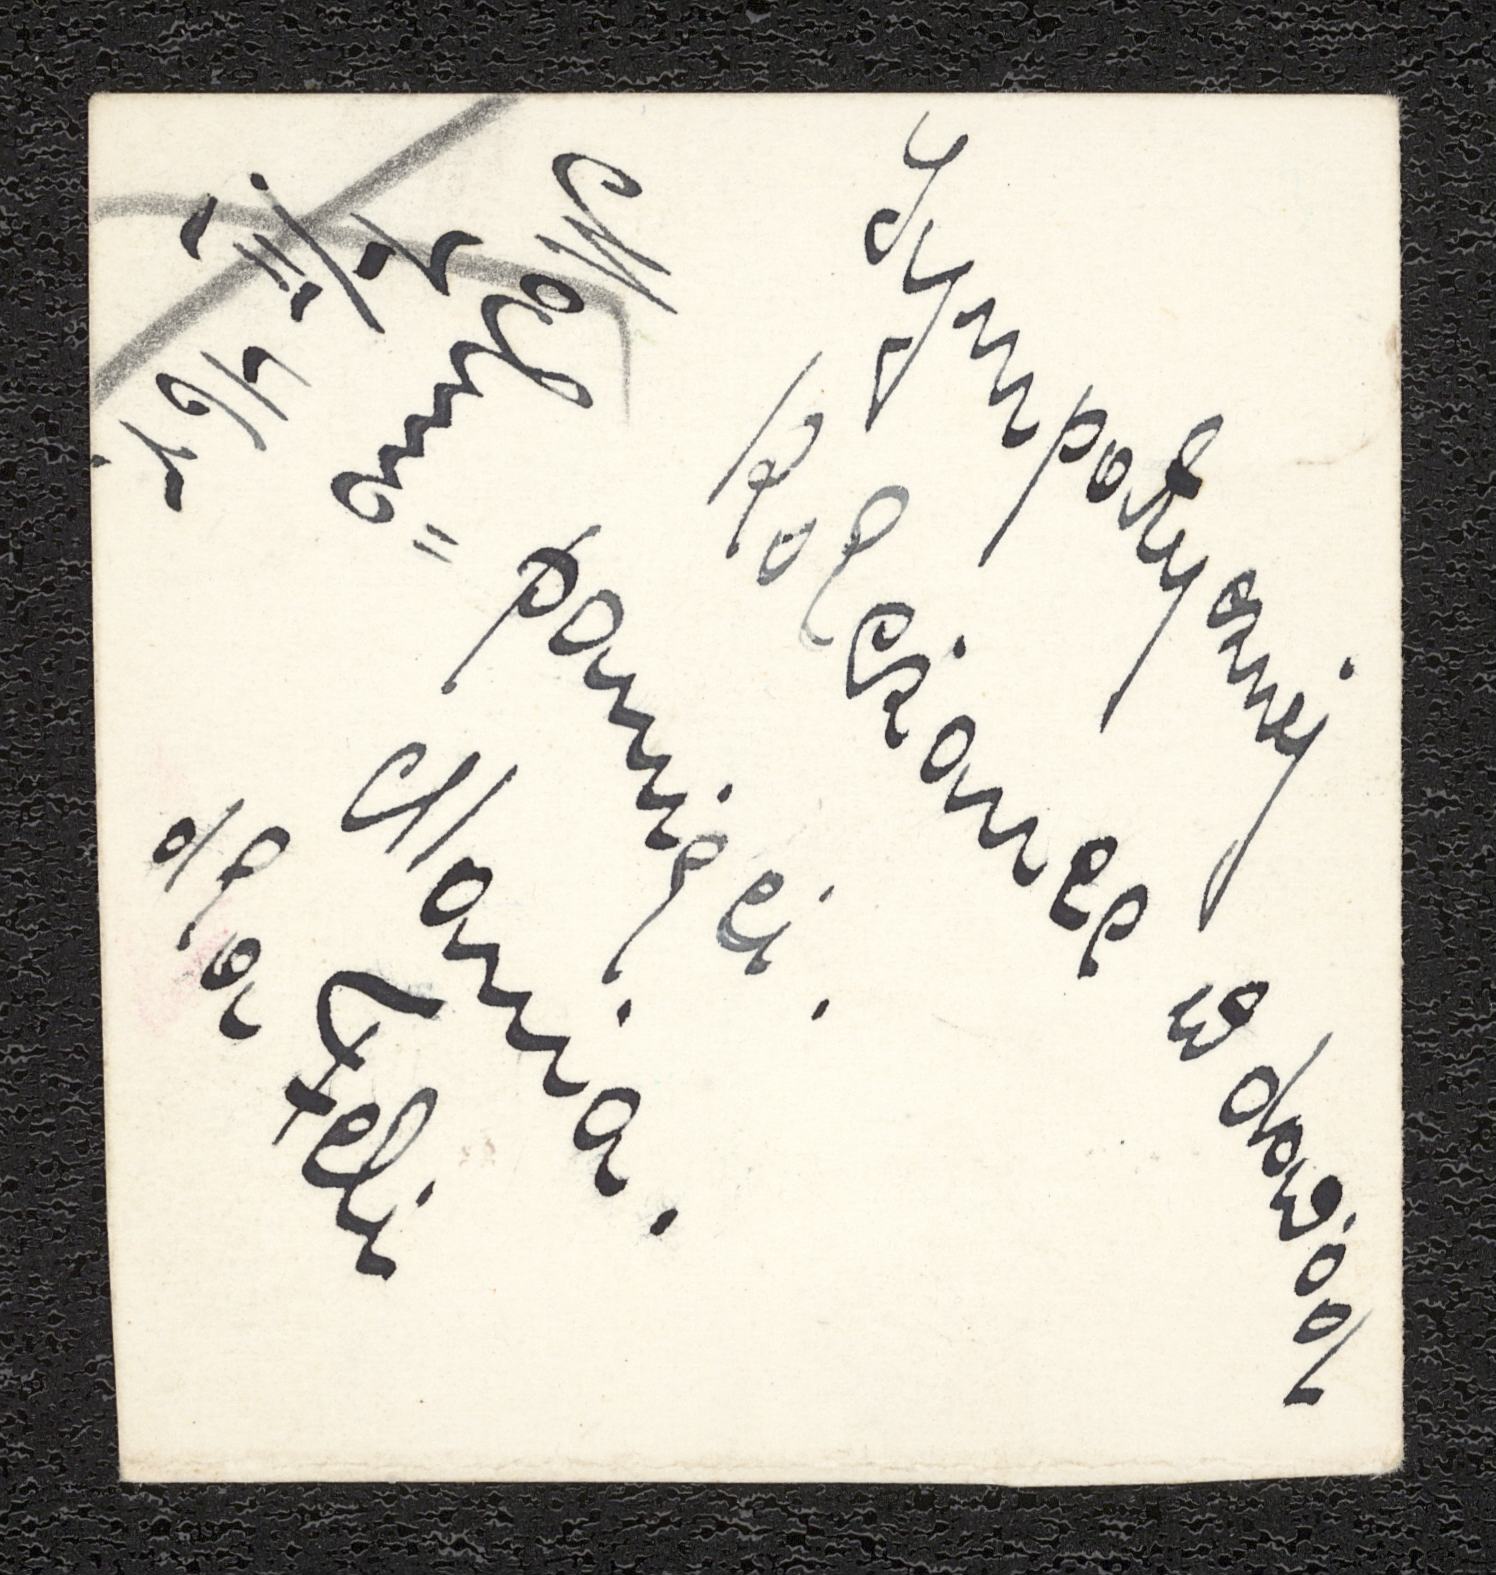 Sympatycznej
Koleżance w dowód
pamięci.
Mania.
dla Feli
II 46 r.